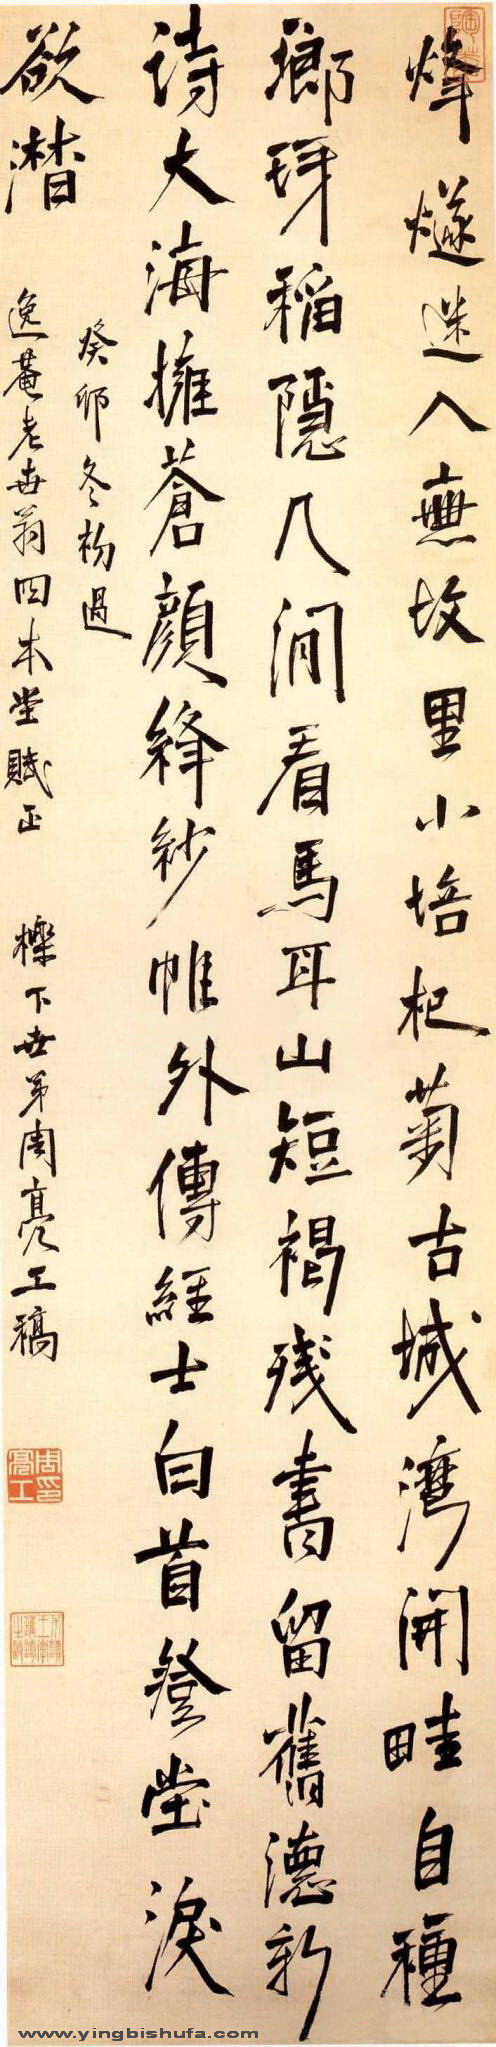 烽燧迷人無故里小培杞菊古城灣開畦自種
瑯琊稻隱几閒看馬耳山短褐殘書留舊德新
詩大海擁蒼顏絳紗帷外傳經士白首登堂淚
欲潸
癸卯冬杪過
逸菴老世翁四本堂賦正
櫟下世弟周亮工稿
周亮工印
www.yingbishufa.com